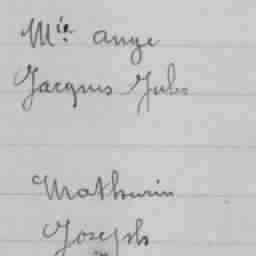 Mie ange
Jacques Jules
Mathurin
Joseph